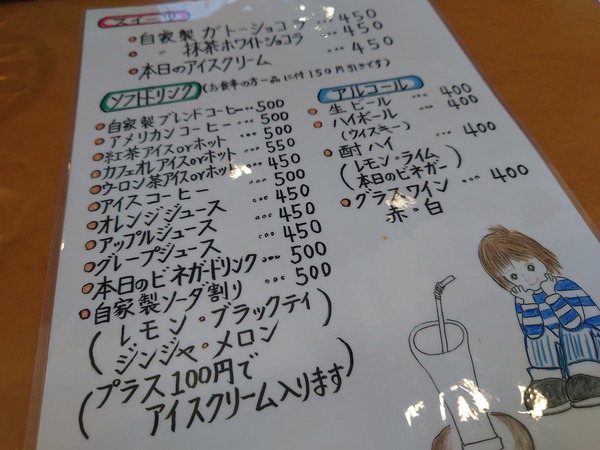 スイーツ
自家製ガトーショコラ … 450
〃 抹茶ホワイトショコラ … 450
本日のアイスクリーム … 450
ソフトドリンク (お食事の方一品に付150円引きです)
自家製ブレンドコーヒー … 500
アメリカンコーヒー … 500
紅茶アイスorホット … 500
カフェオレアイスorホット … 550
ウーロン茶アイスorホット … 450
アイスコーヒー … 500
オレンジジュース … 450
アップルジュース … 450
グレープジュース … 450
本日のビネガードリンク … 500
自家製ソーダ割り … 500
(レモン・ブラックティ
ジンジャ・メロン)
(プラス100円で
アイスクリーム入ります)
アルコール
生ビール … 400
ハイボール … 400
(ウイスキー)
酎ハイ … 400
(レモン・ライム
本日のビネガー)
グラスワイン … 400
赤・白